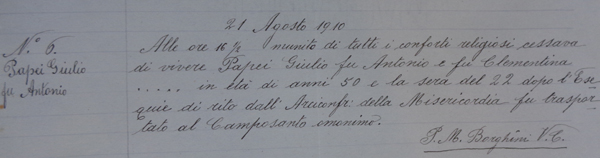 21 Agosto 1910
N.° 6.
Papei Giulio
fu Antonio
Alle ore 16 ½ munito di tutti i conforti religiosi cessava
di vivere Papei Giulio fu Antonio e fu Clementina
..... in età di anni 50 e la sera del 22 dopo l'Ese
quie di rito dall'Arciconfr: della Misericordia fu traspor
tato al Camposanto omonimo.
P. M. Borghini V. C.